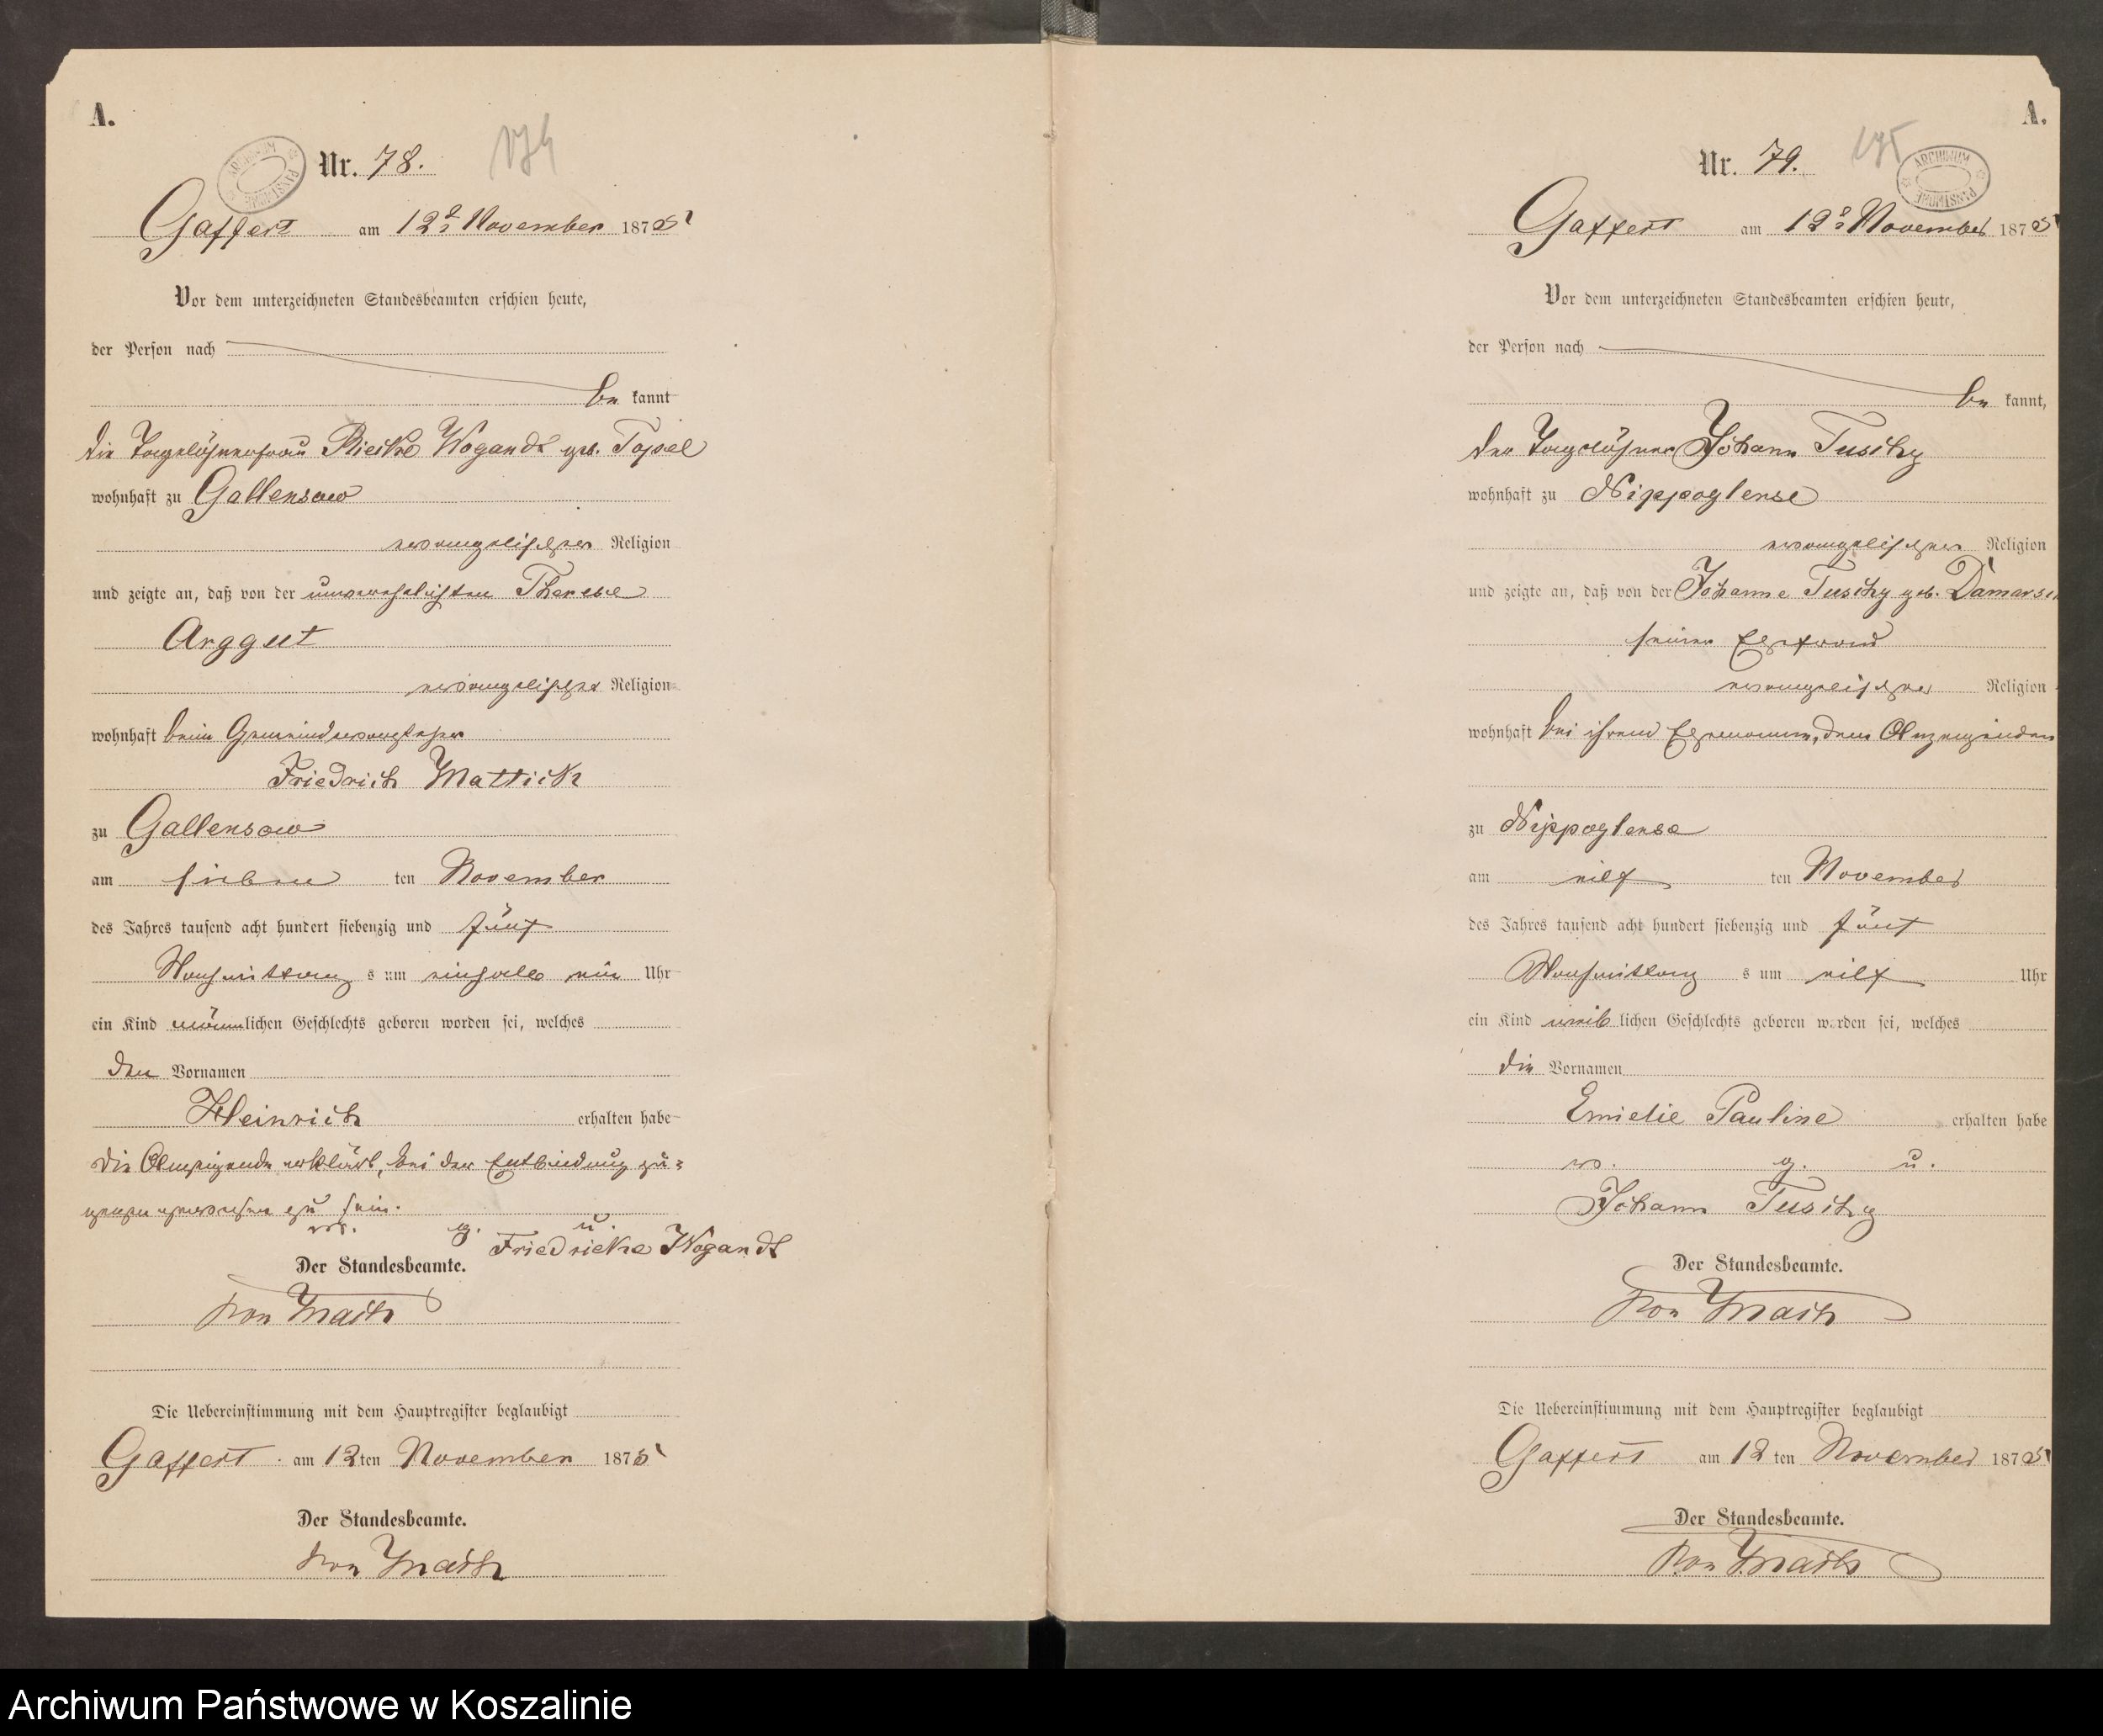 A.
Nr. 78.
174
ARCHIWUM PAŃSTWOWE
Gaffert am 12t November 1875
Vor dem unterzeichneten Standesbeamten erschien heute,
der Person nach
be kannt
die Tagelöhnerfrau Rieke Wogandt geb. Topel
wohnhaft zu Gallensow
evangelischer Religion
und zeigte an, daß von der unverehelichten Therese
Arggut
evangelischer Religion
wohnhaft beim Gemeindevorsteher
Friedrich Mattick
zu Gallensow
am sieben ten November
des Jahres tausend acht hundert siebenzig und fünf
Nachmittag s um einhalb ein Uhr
ein Kind männlichen Geschlechts geboren worden sei, welches
den Vornamen
Heinrich erhalten habe
Die Anzeigende erklärt, bei der Entbindung zu=
gegen gewesen zu sein.
v. g. u.
Friedricke Wogandt
Der Standesbeamte.
von
Die Uebereinstimmung mit dem Hauptregister beglaubigt
Gaffert am 12ten November 1875
Der Standesbeamte.
von
A.
Nr. 79.
175
ARCHIWUM PAŃSTWOWE
Gaffert am 12t November 1875
Vor dem unterzeichneten Standesbeamten erschien heute,
der Person nach
be kannt,
der Tagelöhner Johann Tuschy
wohnhaft zu Nippoglense
evangelischer Religion
und zeigte an, daß von der Johanne Tuschy geb.
seiner Ehefrau
evangelischer Religion
wohnhaft bei ihrem Ehemanne, dem Anzeigenden
zu Nippoglense
am elf ten November
des Jahres tausend acht hundert siebenzig und fünf
Nachmittag s um elf Uhr
ein Kind weib lichen Geschlechts geboren worden sei, welches
die Vornamen
Emielie Pauline erhalten habe
v. g. u.
Johann Tuschy
Der Standesbeamte.
von
Die Uebereinstimmung mit dem Hauptregister beglaubigt
Gaffert am 12 ten November 1875
Der Standesbeamte.
von
Archiwum Państwowe w Koszalinie